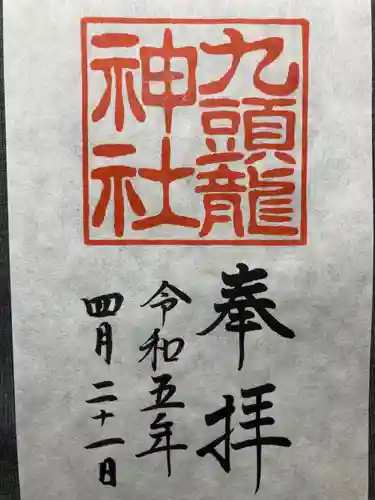 九頭龍
神社
奉拝
令和五年
四月二十一日